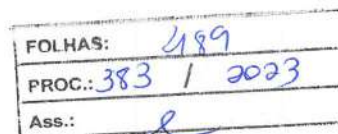 FOLHAS: 489
PROC.: 383 / 2023
Ass.: